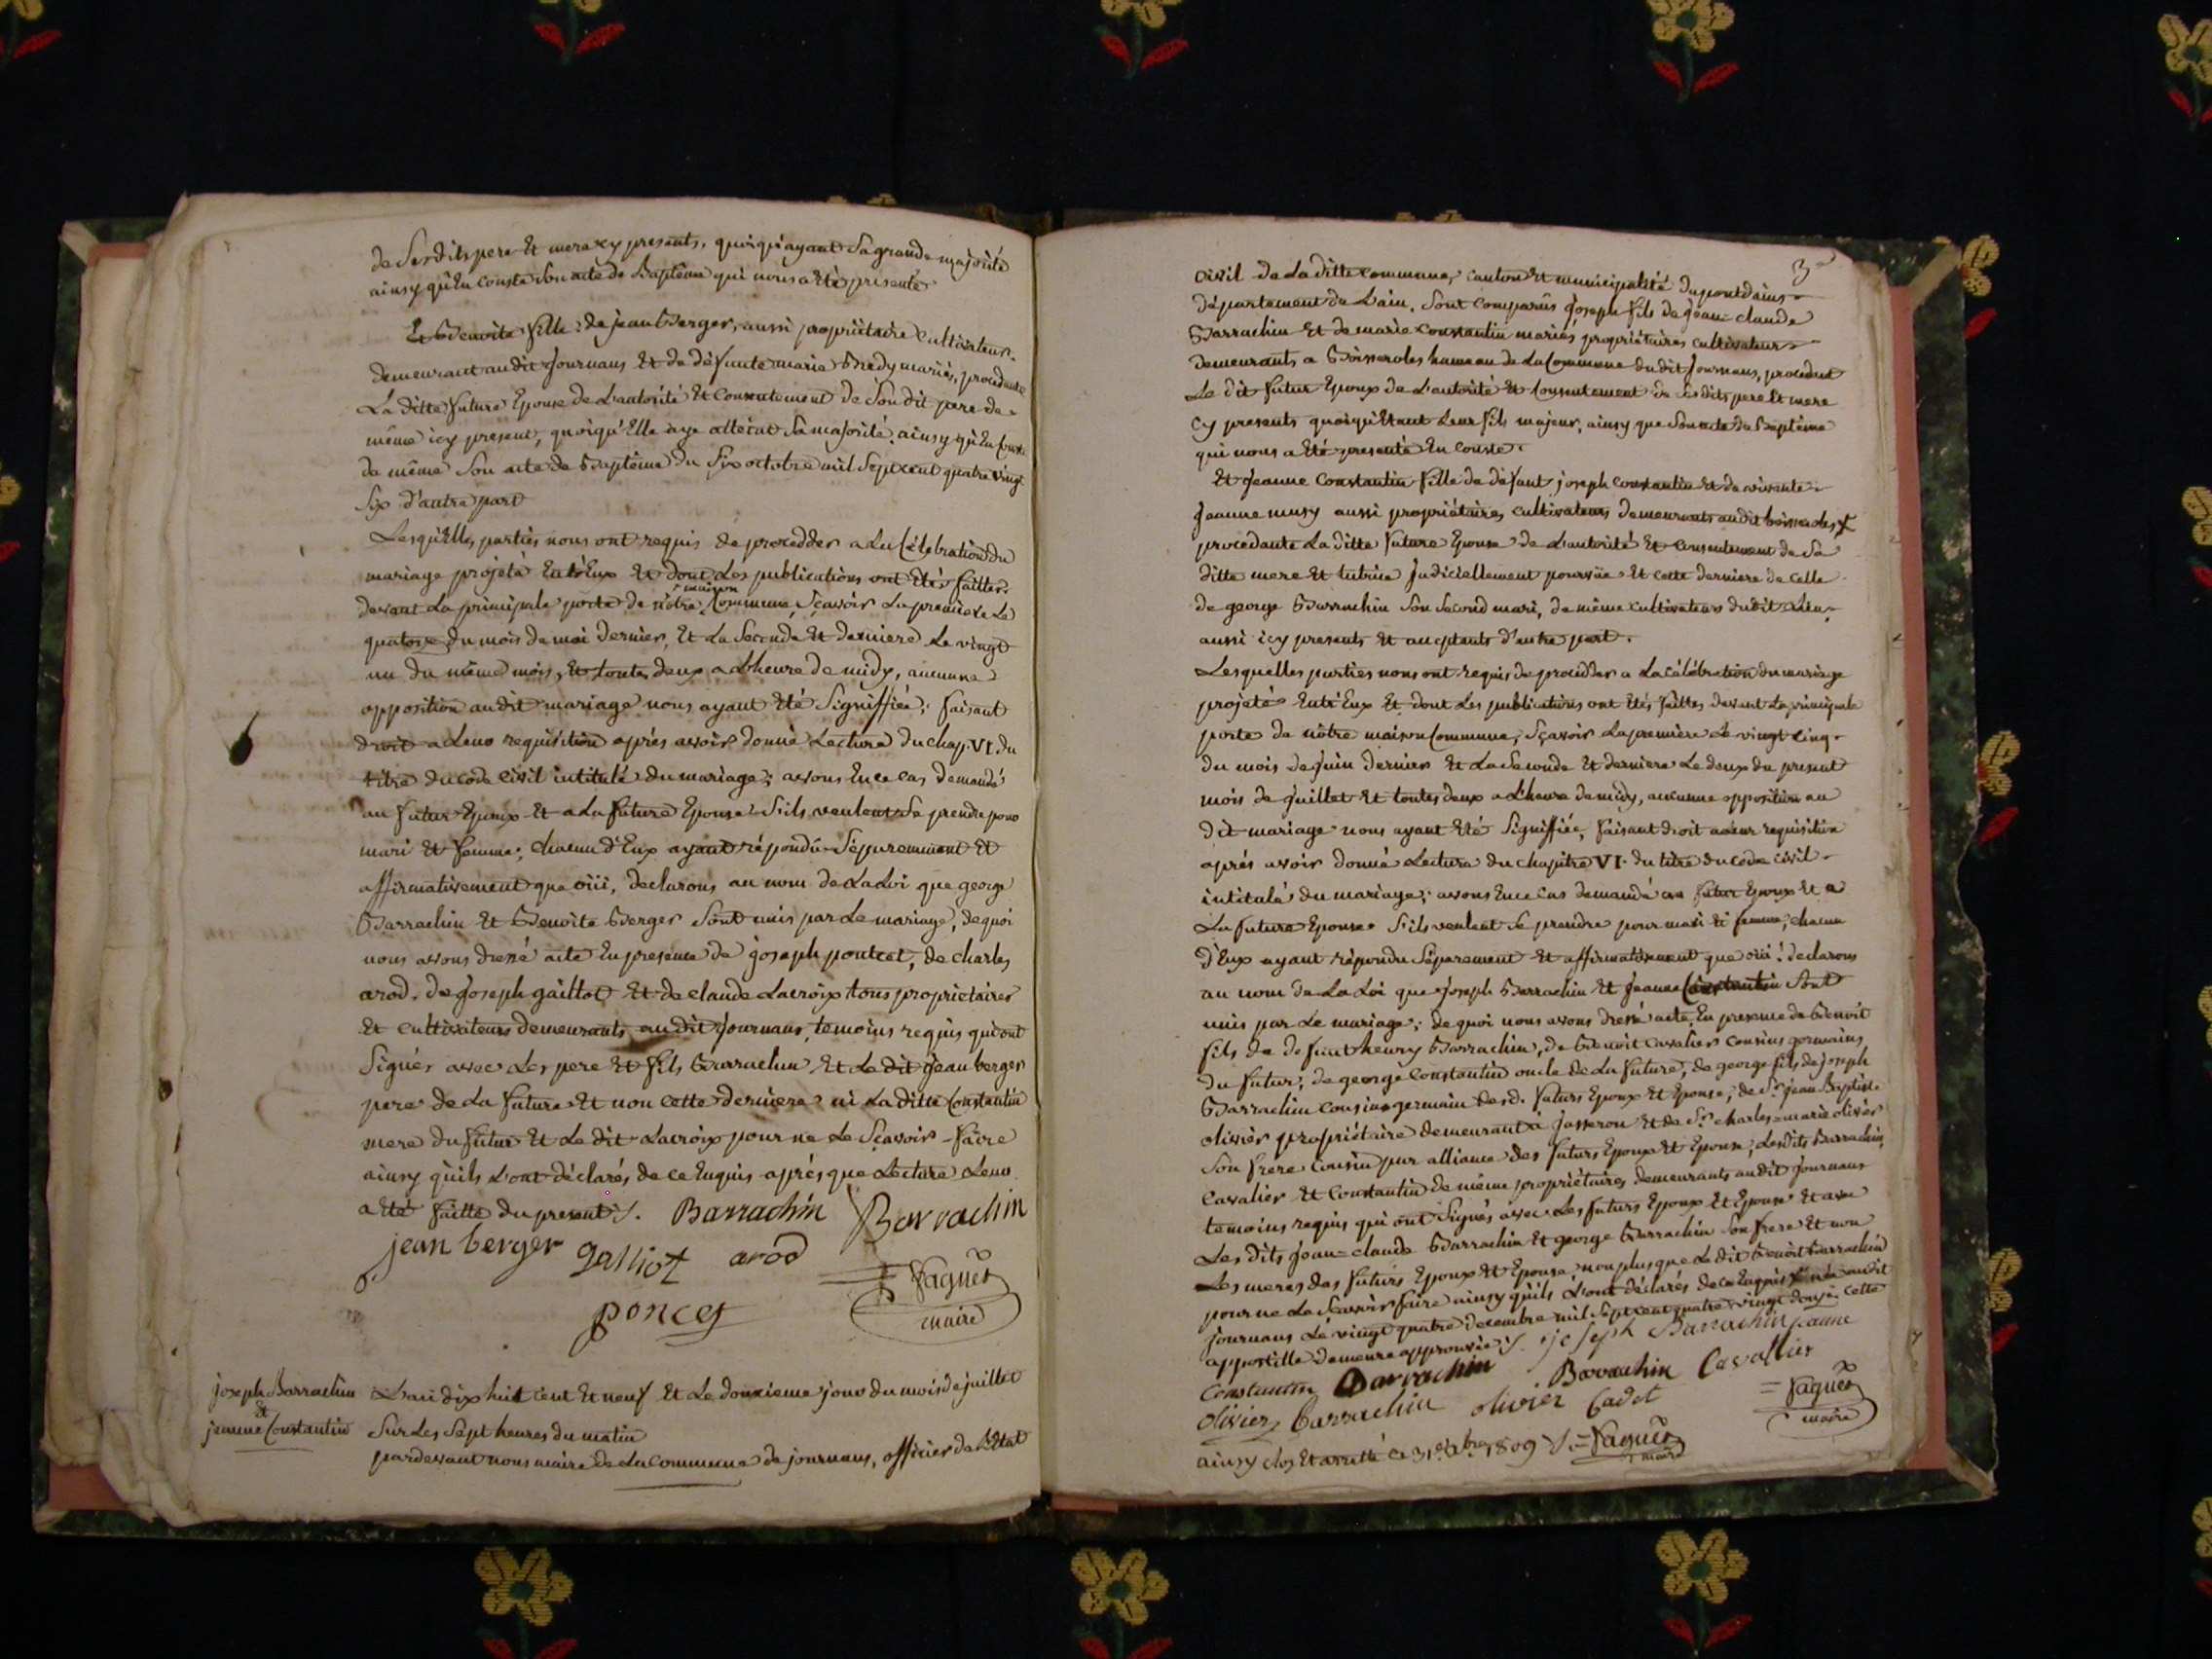 de Ses dits pere Et mere icy presents, quoiqu'ayant Sa grande majorité
ainsy qu'En Conste Son acte de Baptême qui nous a Eté presenté
Et Benoite fille de jean Berger, aussi propriétaire Cultivateur
demeurant au dit journans Et de défunte marie Bredy mariés, procedante
La ditte future Epouse de L'autorité Et Consentement de Son dit pere de
même icy present, quoiqu'Elle aye atteint Sa majorité, ainsy qu'En Conste
de même Son acte de Baptême du Six octobre mil Sept cent quatre vingt
Six d'autre part
Lesqu'Elles parties nous ont requis de procedder a La Célebration du
mariage projeté Entr'Eux Et dont Les publications ont Etés faittes
maison
devant La principale porte de nôtre Commune, Sçavoir La premiere Le
quatorze du mois de mai dernier, Et La Seconde Et derniere Le vingt
un du même mois, Et toutes deux a Lheure de midy, aucunne
opposition au dit mariage nous ayant Eté Signiffiée; faisant
droit a Leur requisition après avoir donné Lecture du chap. VI. du
titre du code Civil intitulé du mariage; avons En ce cas demandé
au futur Epoux Et a La future Epouse S'ils veulent Se prendre pour
mari Et femme; chacun d'Eux ayant répondu Séparemment Et
affirmativement que oüi, declarons au nom de La Loi que george
Barrachin Et Benoite Berger Sont unis par Le mariage; de quoi
nous avons dressé acte En presence de joseph poncet, de charles
arod, de joseph gaillot Et de claude Lacroix tous propriétaires
Et Cultivateurs demeurants au dit journans, temoins requis qui ont
Signés avec Les pere Et fils Barrachin Et Le dit jean berger
pere de La future Et non cette derniere ni La ditte Constantin
mere du futur Et Le dit Lacroix pour ne Le Sçavoir faire
ainsy qu'ils L'ont déclarés de ce Enquis après que Lecture Leur
a Eté faitte du present ./. Barrachin Barrachin
jean berger galliot arod
Vaguet
poncet
maire
joseph Barrachin
Et
jeanne Constantin
L'an dix huit cent Et neuf Et Le douxieme jour du mois de juillet
Sur Les Sept heures du matin
pardevant nous maire de La Commune de journans, officier de L'Etat
3
civil de La ditte commune, canton Et municipalité du pontdains
département de L'ain. Sont comparûs joseph fils de jean-claude
Barrachin Et de marie Constantin mariés propriétaires cultivateurs
demeurants a Boisseroles hameau de La Commune du dit journans, procedant
Le dit futur Epoux de L'autorité Et Consentement de Ses dits pere Et mere
cy presents quoiqu'Etant Leur fils majeur, ainsy que Son acte de Baptême
qui nous a Eté presenté En Conste.
Et jeanne Constantin fille de défunt joseph Constantin Et de vivante
jeanne musy aussi propriétaires cultivateurs demeurants au dit boisseroles
procedante La ditte future Epouse de L'autorité Et Consentement de Sa
ditte mere Et tutrice judiciellement pourvûe Et cette derniere de celle
de george Barrachin Son Second mari, de même cultivateurs dudit Lieu,
aussi icy presents Et acceptants d'autre part.
Lesquelles parties nous ont requis de procedder a La célébration du mariage
projeté Entr'Eux Et dont Les publications ont Etés faittes devant La principale
porte de nôtre maison Commune, Sçavoir La première Le vingt Cinq
du mois de juin dernier Et La Seconde Et derniere Le deux du present
mois de juillet Et toutes deux a L'heure de midy, aucunne opposition au
dit mariage nous ayant Eté Signiffiée, faisant droit a Leur requisition
aprés avoir donné Lecture du chapitre VI. du titre du code civil
intitulé du mariage; avons En ce cas demandé au futur Epoux Et a
La future Epouse S'ils veulent Se prendre pour mari Et femme; chacun
d'Eux ayant répondu Séparement Et affirmativement que oüi; declarons
au nom de La Loi que joseph Barrachin Et jeanne Constantin Sont
unis par Le mariage; de quoi nous avons dressé acte, En presence de Benoit
fils de defunt henry Barrachin, de Benoit Cavalier cousins germains
du futur; de george Constantin oncle de La future, de george fils de joseph
Barrachin cousin germain des d. futurs Epoux Et Epouse; de Sr. jean Baptiste
olivier propriétaire demeurant à jasseron Et de Sr. charles-marie olivier
Son frere Cousin par alliance des futurs Epoux Et Epouse, Les dits Barrachin,
Cavalier Et Constantin de même propriétaires demeurants au dit journans
temoins requis qui ont Signés avec Les futurs Epoux Et Epouse Et avec
Les dits jean-claude Barrachin Et george Barrachin Son frere Et non
Les meres des futurs Epoux Et Epouse, non plus que Le dit Benoit Barrachin
pour ne Le Sçavoir faire ainsy qu'ils L'ont déclarés de ce Enquis née au dit
journans Le vingt quatre decembre mil Sept cent quatre vingt douze cette
appostille demeure approuvée ./. joseph Barrachin jeanne
Constantin Barrachin Barrachin Cavallier
olivier Barrachin olivier Cadet Vaguet
maire
ainsy clos Et arretté Ce 31 Xbre 1809 ./. Vaguet
maire